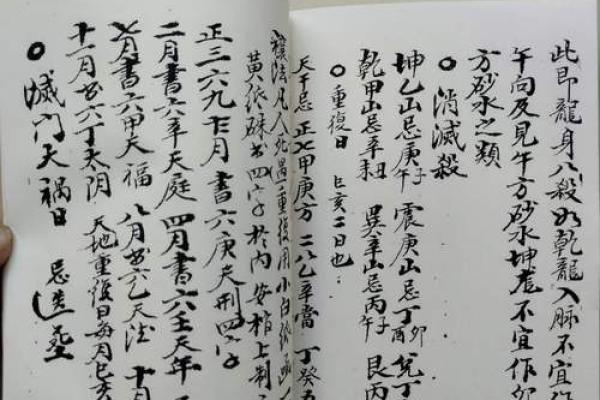 此即龍身八殺如乾龍入脉不宜作
午向及見午方砂水坤龍不宜作卯
方砂水之類
○消滅殺
坤乙山忌庚午子 震庚山忌丁酉卯 兌丁
乾甲山忌辛丑 巽辛山忌丙午子 艮丙
○重復日 巳亥二日也
天干忌 正七甲庚方 二八乙辛當 丁癸五
禳法凡人犯
重復用小白紙函一
黃紙硃书四字於內安棺上制
正三六九十二月 書六庚天刑四字
二月書六辛天庭 四月書六壬天年
七月書六甲天福 八月书六乙天德 十月
十一月书六丁太阴 天地重復日每月巳亥
○滅门天禍日 忌造塟